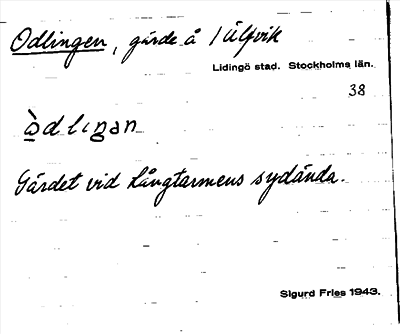 Odlingen, gärde å / Ülfvik
Lidingö stad. Stockholms län.
38
òdlıŋan
Gärdet vid Långtarmens sydända.
Sigurd Fries 1943.